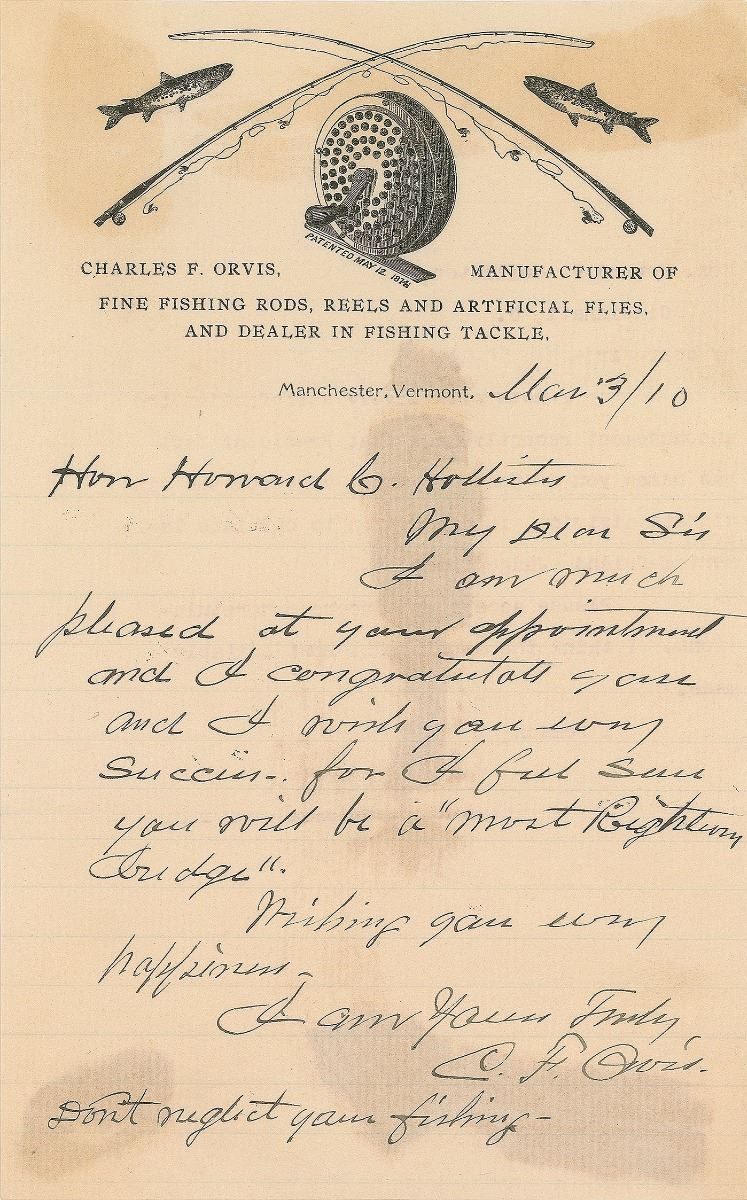 PATENTED MAY 12. 1874
CHARLES F. ORVIS, MANUFACTURER OF
FINE FISHING RODS, REELS AND ARTIFICIAL FLIES,
AND DEALER IN FISHING TACKLE,
Manchester, Vermont, Mar 3/10
Hon Howard C. Hollister
My Dear Sir
I am much
pleased at your appointment
and I congratulate you
and I wish you every
Success - for I feel sure
you will be a "most Righteous
Judge".
Wishing you every
happiness -
I am Yours Truly
C. F. Orvis.
Don't neglect your fishing -